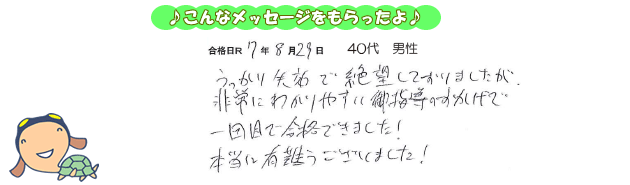 ♪こんなメッセージをもらったよ♪
合格日R 7 年 8 月 29 日 40代 男性
うっかり失効で絶望しておりましたが、
非常にわかりやすい御指導のおかげで
一回目で合格できました!
本当に有難うございました!